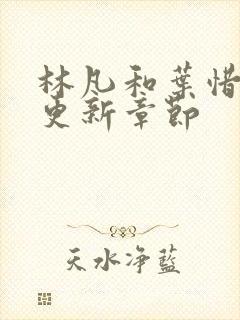 林凡和葉惜
更新章節
天水净藍